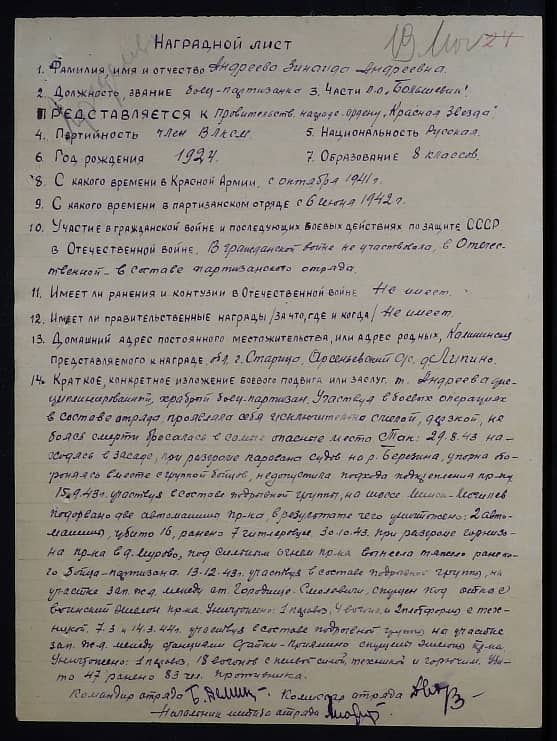 Наградной лист
1. Фамилия, имя и отчество Андреева Зинаида Андреевна.
2. Должность, звание боец-партизанка 3. Части п.о. "Большевик"
Представляется к Правительств. награде-ордену "Красная Звезда"
4. Партийность член ВЛКСМ 5. Национальность Русская.
6. Год рождения 1924. 7. Образование 8 классов.
8. С какого времени в Красной Армии, с октября 1941 г.
9. С какого времени в партизанском отряде с 6 июня 1942 г.
10. Участие в гражданской войне и последующих боевых действиях по защите СССР
в Отечественной войне. В гражданской войне не участвовала, в Отече-
ственной - в составе партизанского отряда.
11. Имеет ли ранения и контузии в Отечественной войне Не имеет.
12. Имеет ли правительственные награды /за что, где и когда/ Не имеет.
13. Домашний адрес постоянного местожительства, или адрес родных, Калининская
Представляемого к награде. обл. г. Старица, Арсеньевский с/с. д. Липино.
14. Краткое, конкретное изложение боевого подвига или заслуг. т. Андреева дис-
циплинированный, храбрый боец-партизан. Участвуя в боевых операциях
в составе отряда, проявляла себя исключительно смелой, дерзкой, не
боясь смерти бросалась в самые опасные места Так: 29.8.43 на-
ходясь в засаде, при разгроме паровых судов на р. Березина, упорно обо-
роняясь вместе с группой бойцов, недопустила подхода подкрепления пр-ку
15.9.43 г. участвуя в составе подрывной группы, на шоссе Минск-Могилев
подорвано две автомашины пр-ка, в результате чего уничтожено: 2 авто-
машины, убито 16, ранено 7 гитлеровцев. 30.10.43. при разгроме гарнизо-
на пр-ка в д. под сильным огнем пр-ка вынесла тяжело ранено-
го бойца-партизана. 13.12.43 г. участвуя в составе подрывной группы, на
участке зап. ж.д. между ст. Городище-Смолевичи, спущен под откос
воинский эшелон пр-ка. Уничтожено: 1 паровоз, 4 вагона, и 2 платформы с тех-
никой. 7.3 и 14.3.44 г. участвуя в составе подрывной группы на участке
зап. ж.д. между станциями спущено эшелона пр-ка.
Уничтожено: 1 паровоз, 18 вагонов с живой силой, техникой и горючим. Уби-
то 47 ранено 83 чел. противника.
Командир отряда Комиссар отряда
Начальник штаба отряда